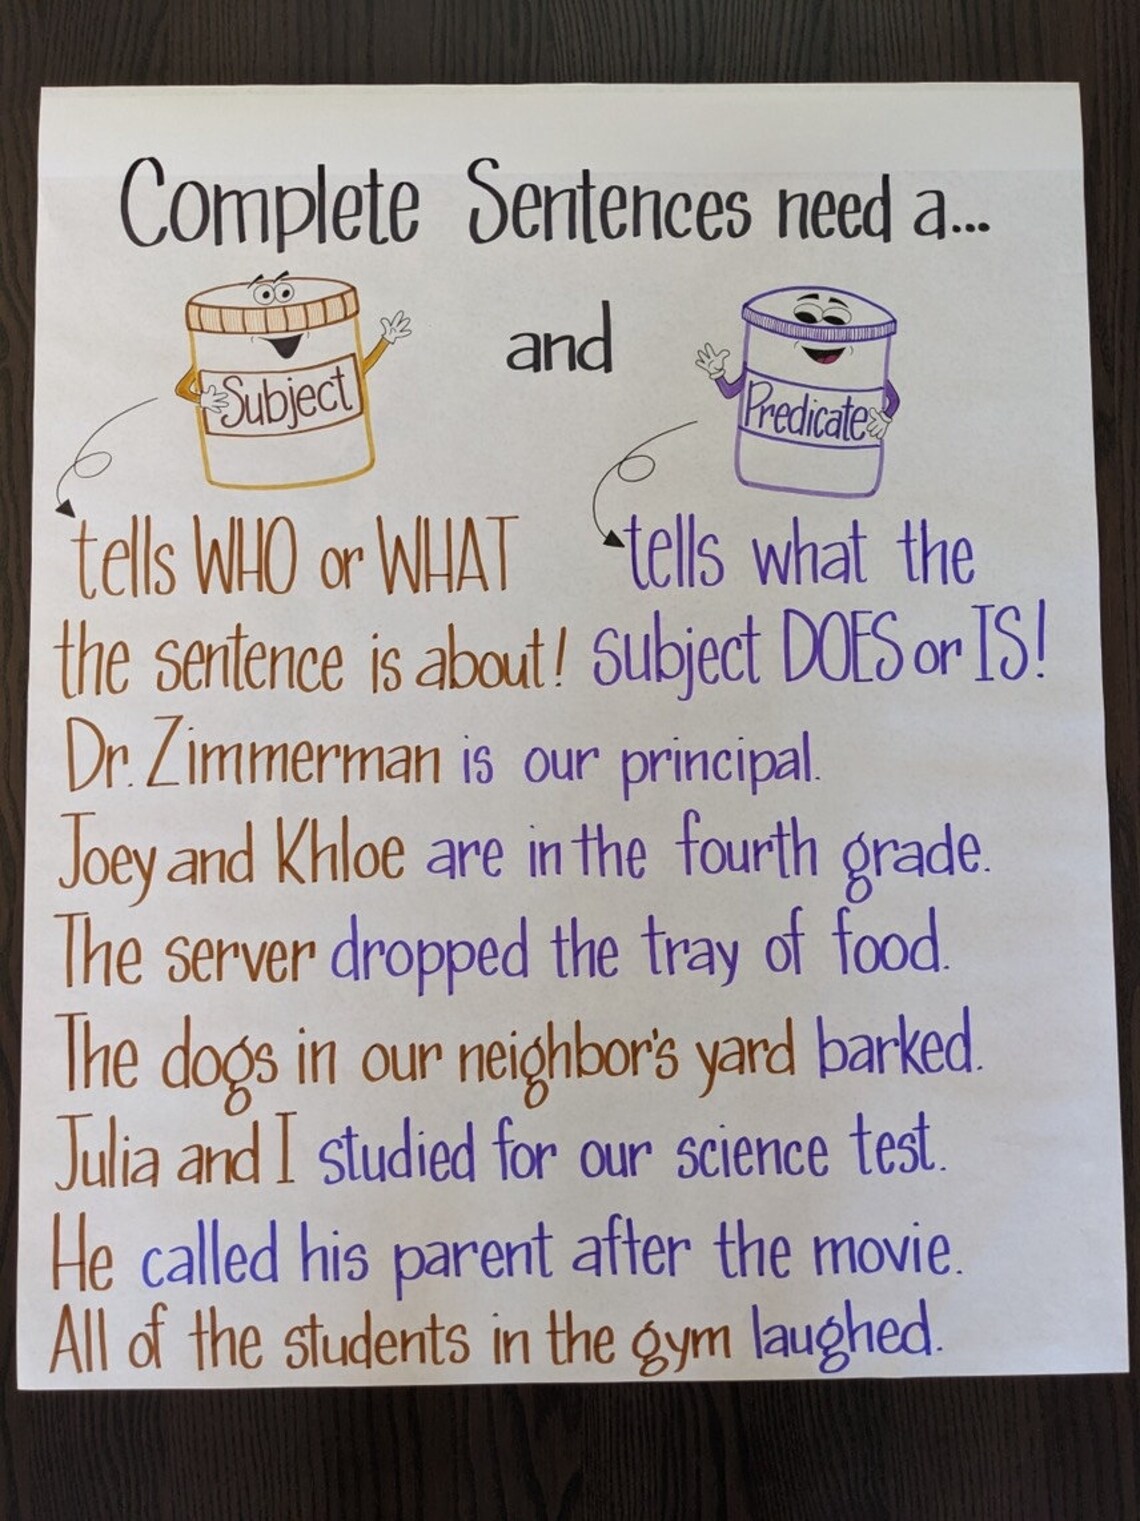 Complete Sentences need a...
Subject
and
Predicate
tells WHO or WHAT
the sentence is about!
tells what the
subject DOES or IS!
Dr. Zimmerman is our principal.
Joey and Khloe are in the fourth grade.
The server dropped the tray of food.
The dogs in our neighbor's yard barked.
Julia and I studied for our science test.
He called his parent after the movie.
All of the students in the gym laughed.